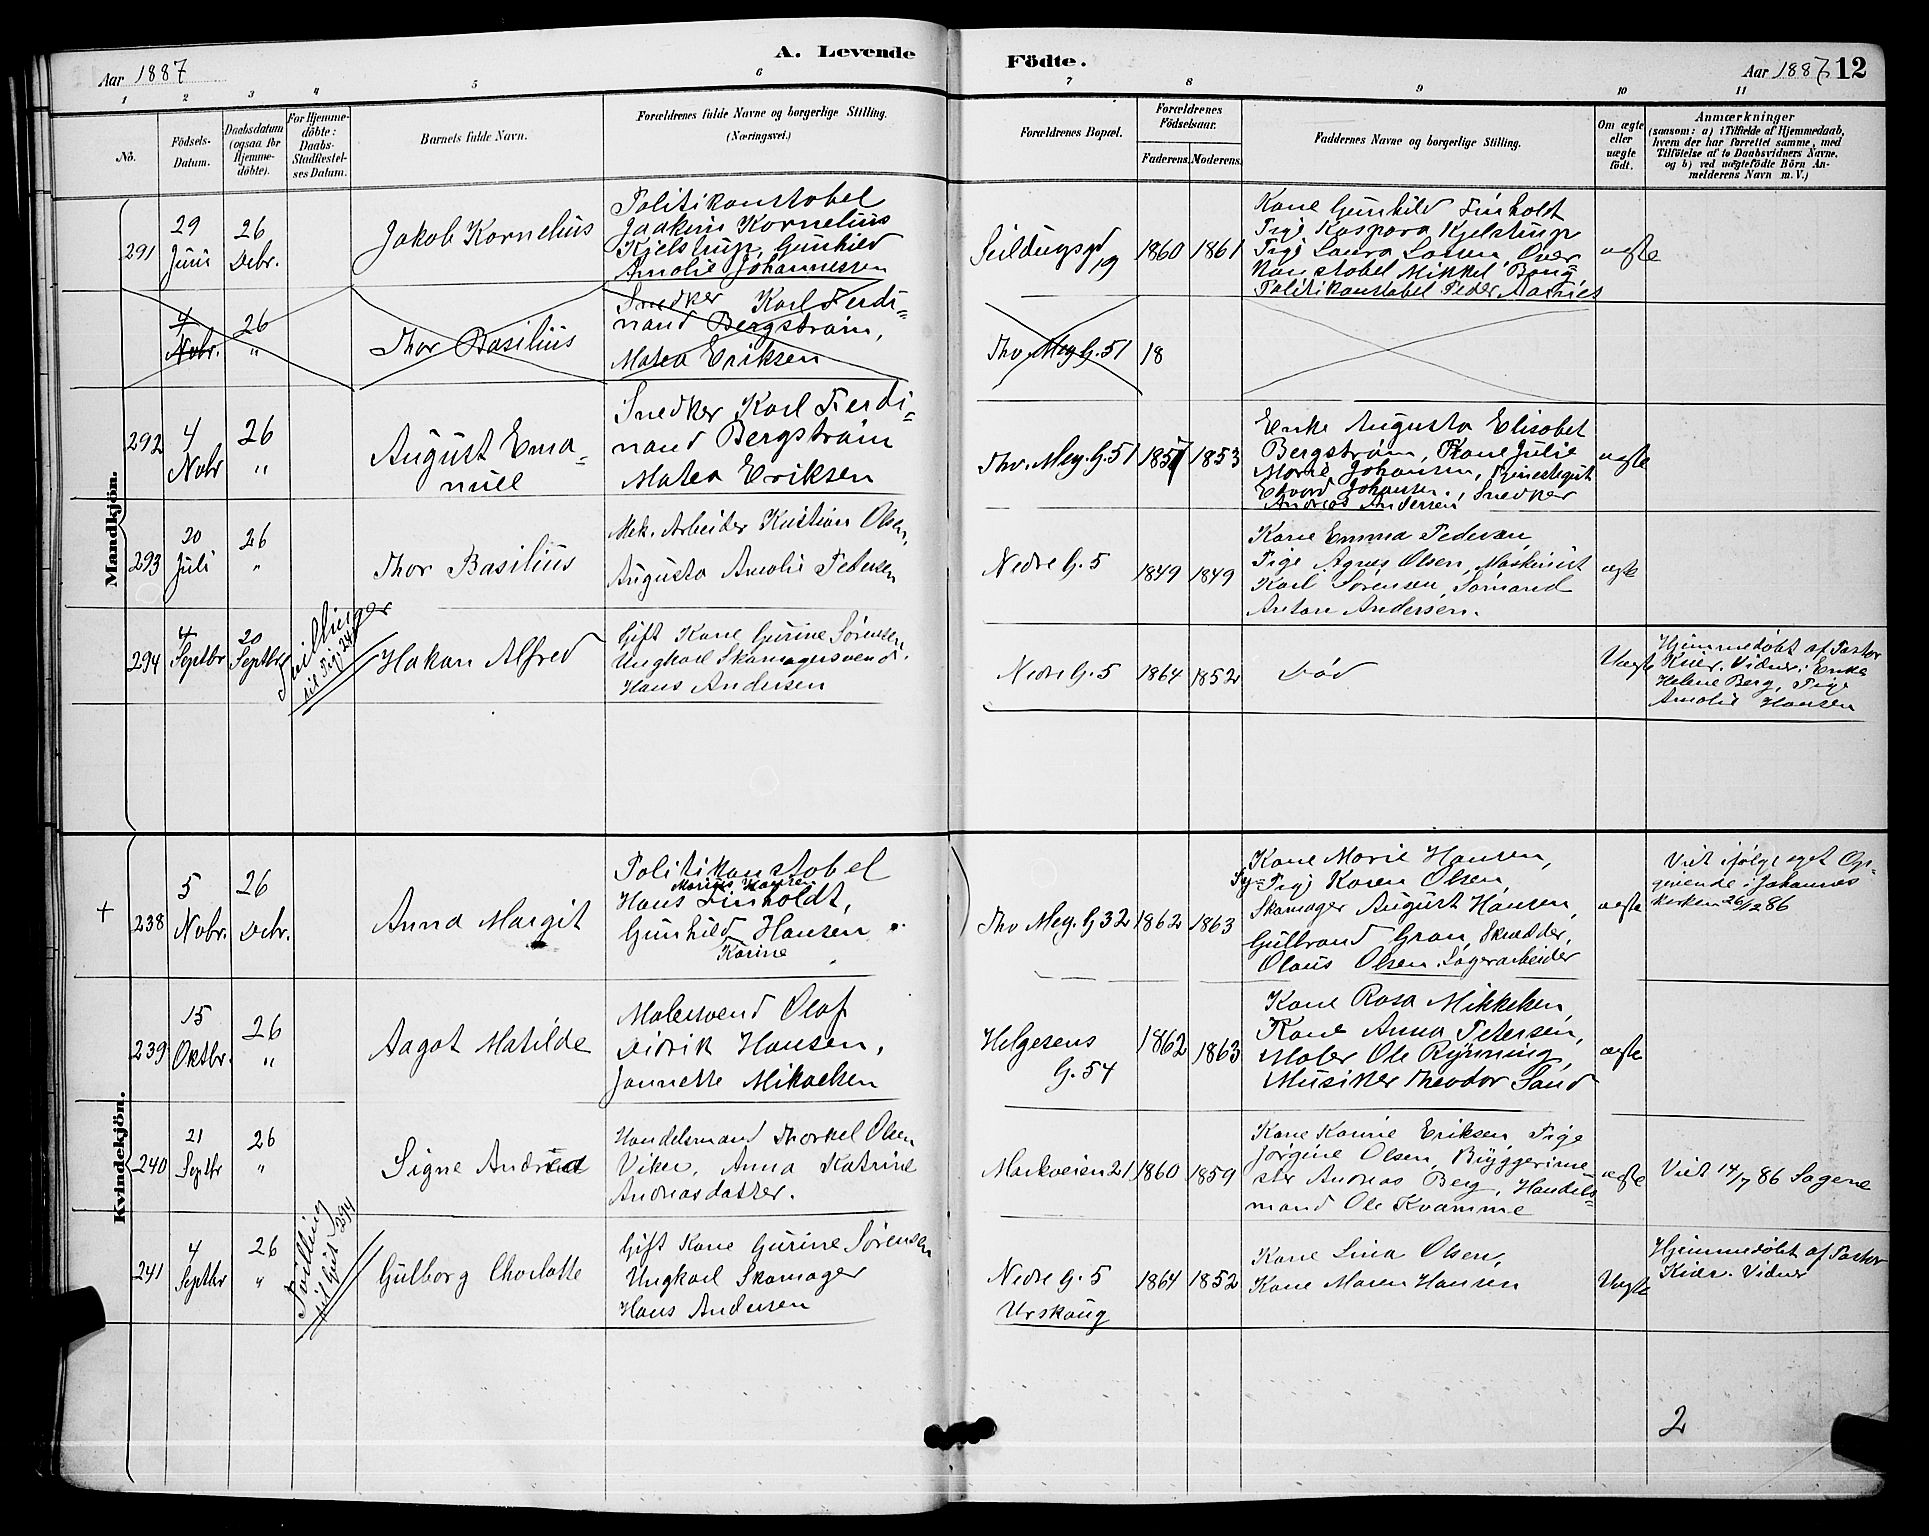 Aar 1887
A. Levende
Födte.
Aar 1887.
12
1 2 3 4 5 6 7 8 9 10 11
No.
Födsels-
Datum.
Daabsdatum
(ogsaa for
Hjemme-
döbte).
For Hjemme-
döbte:
Daabs-
Stadfæstel-
ses Datum.
Barnets fulde Navn.
Forældrenes fulde Navne og borgerlige Stilling.
(Næringsvei.)
Forældrenes Bopæl.
Forældrenes
Födselsaar.
Faderens.
Moderens.
Faddernes Navne og borgerlige Stilling.
Om ægte
eller
uægte
födt.
Anmærkninger
(saasom: a) i Tilfælde af Hjemmedaab,
hvem der har forrettet samme, med
Tilföielse af to Daabsvidners Navne,
og b) ved uægtefödte Börn An-
melderens Navn m. V.)
Mandkjön.
291
29
Juni
26
Debr.
Jakob Kornelius
Politikonstabel
Joakim Kornelius
Kjelstrup, Gunhild
Amalie Johannessen
Seildugsgd 19
1860
1861
Kone Gunhild Finholt
Pige Kaspara Kjelstrup
Pige Laura Larsen, Over
Konstabel Mikkel Berg
Politikonstabel Peder Aarnes
ægte
4
Nobr.
26
"
Thor Basilius
Snedker Karl Ferdi=
nand Bergstrøm,
Matea Eriksen
Thv. Mey. G. 51
18
292
4
Nobr
26
"
August Ema=
nuel
Snedker Karl Ferdi=
nand Bergstrøm
Matea Eriksen
Thv. Mey. G. 51
1857
1853
Enke Augusta Elisabet
Bergstrøm, Kone Julie
Marie Johansen,
Edvard Johansen, Snedker
Andreas Andersen
ægte
293
20
Juli
26
"
Thor Basilius
Mek. Arbeider Kristian Olsen,
Augusta Amalie Pedersen
Nedre G. 5
1849
1849
Kone Emma Pedersen,
Pige Agnes Olsen, Maskinist
Karl Sørensen, Sømand
Anton Andersen.
ægte
294
4
Septbr
20
Septbr
Tvillinger
til Pig. 241
Hakan Alfred
Gift Kone Gurine Sørensen
Ungkarl Skomagersvend
Hans Andersen
Nedre G. 5
1864
1852
Død
Uægte
Hjemmedøbt af Pastor
Kiær. Vidner: Enke
Helene Berg, Pige
Amalie Hansen
Kvindekjön.
+
238
5
Nobr.
26
Debr.
Anna Margit
Politikonstabel
Marius Hansen
Hans Finholdt,
Gunhild Hansen
Karine
Thv Mey. G 32
1862
1863
Kone Marie Hansen,
Sy=Pige Karen Olsen,
Skomager August Hansen,
Gulbrand Gran, Skrædder,
Olaus Olsen, Lagerarbeider
ægte
Viet ifølge eget Op-
givende i Johannes
kirken 26/12 86
239
15
Oktbr.
26
"
Aagot Matilde
Malersvend Olaf
Didrik Hansen,
Jannette Mikaelsen
Helgesens
G. 54
1862
1863
Kone Rosa Mikkelsen,
Kone Anna Petersen,
Maler Ole Rynning,
Musiker Theodor Sand
ægte
240
21
Septbr
26
"
Signe Andrea
Handelsmand Thorkel Olsen
Viker, Anna Katrine
Andreasdatter.
Markveien 21
1860
1859
Kone Karine Eriksen, Pige
Jørgine Olsen, Bryggerime=
ster Andreas Berg, Handels=
mand Ole Kvamme
ægte
Viet 14/7 86 Sagene
241
4
Septbr
26
"
Tvilling
til Gut 294
Gulborg Charlotte
Gift Kone Gurine Sørensen
Ungkarl Skomager
Hans Andersen
Nedre G. 5
Urskoug
1864
1852
Kone Lina Olsen,
Kone Maren Hansen
Uægte
Hjemmedøbt af Pastor
Kiær. Vidner
2